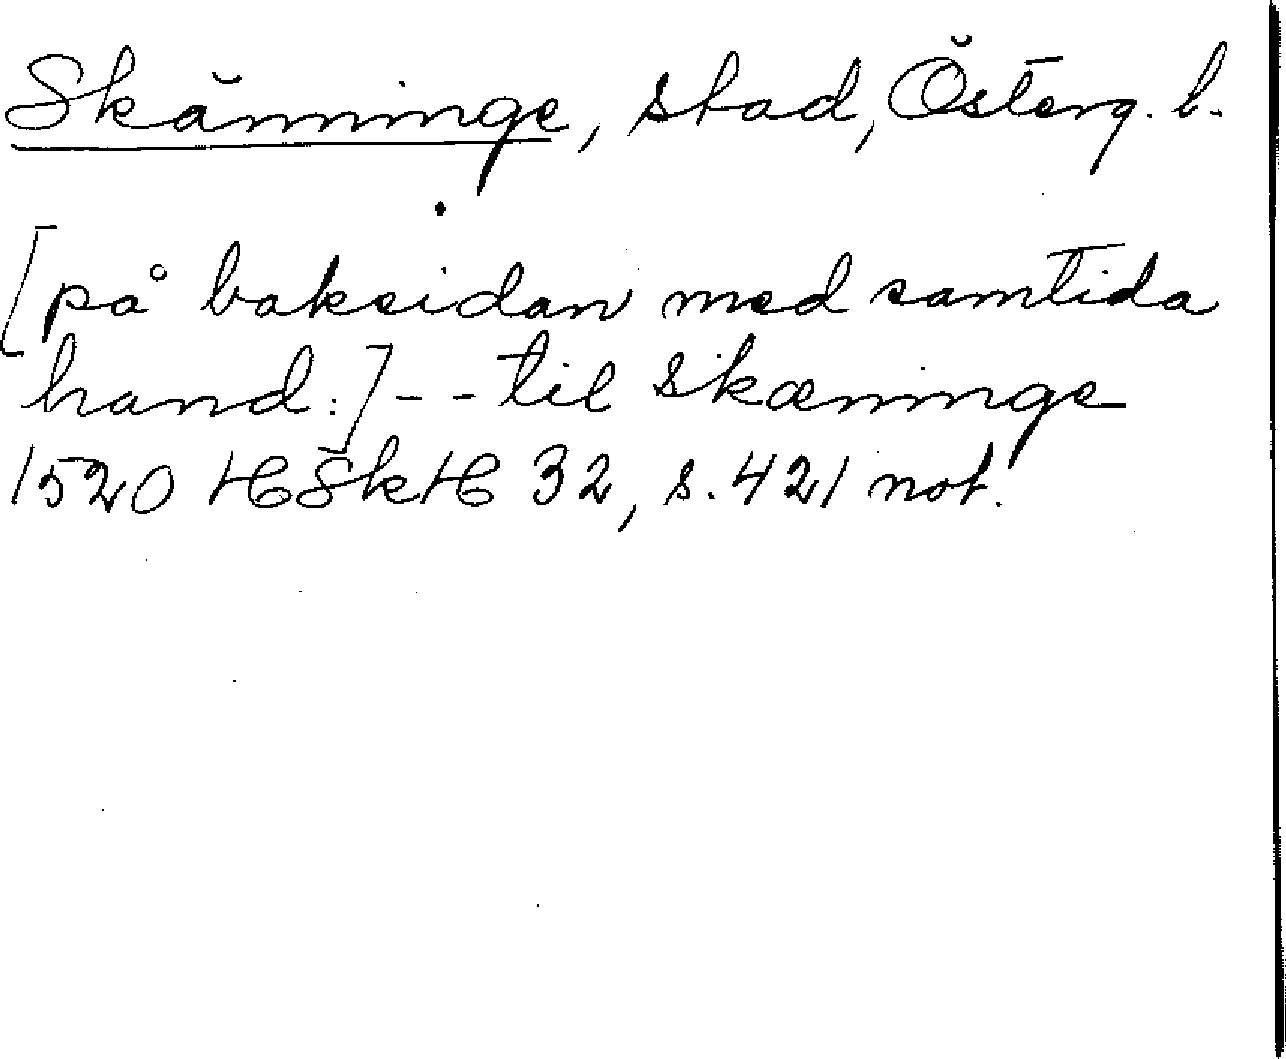 Skänninge, stad, Österg. l.
[på baksidan med samtida
hand:] -- til skæninge
1520 HSkH 32, s. 421 not.